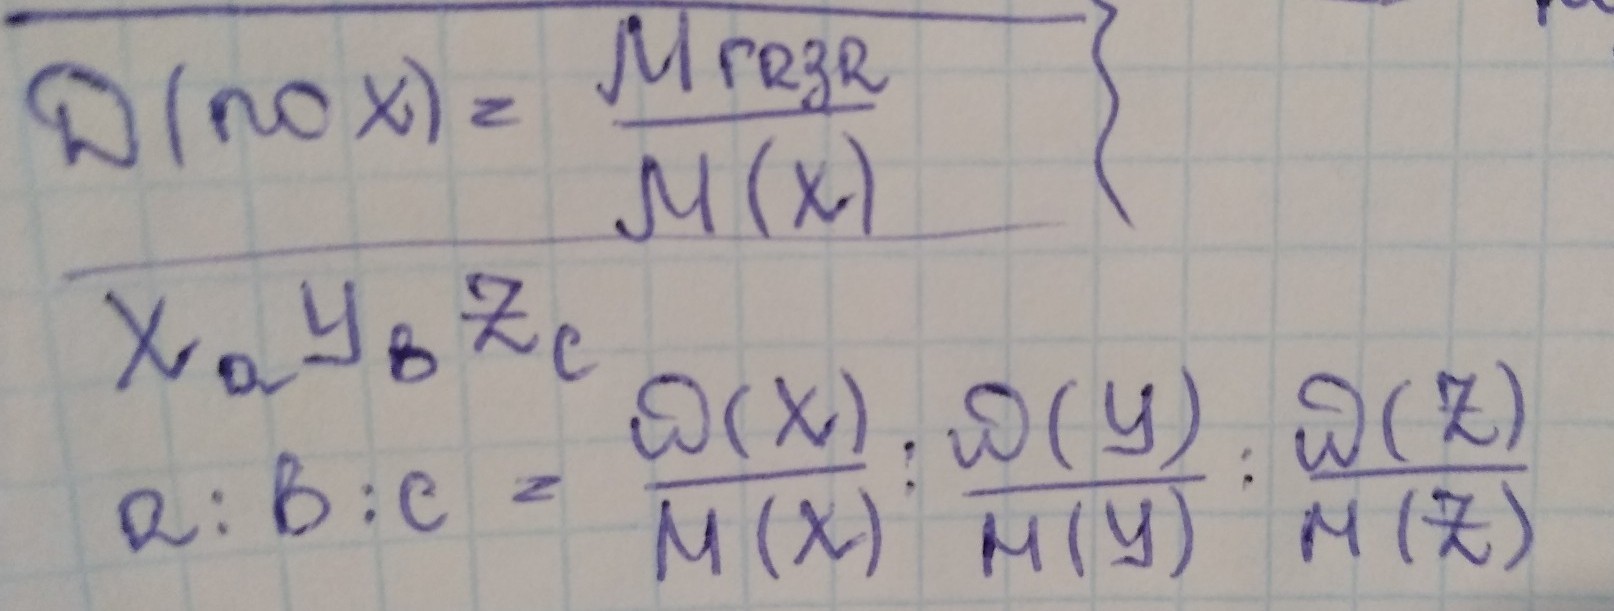 D(по X) = M газа / M(X)
XaYвZc
a : в : c = ω(X) / M(X) : ω(Y) / M(Y) : ω(Z) / M(Z)